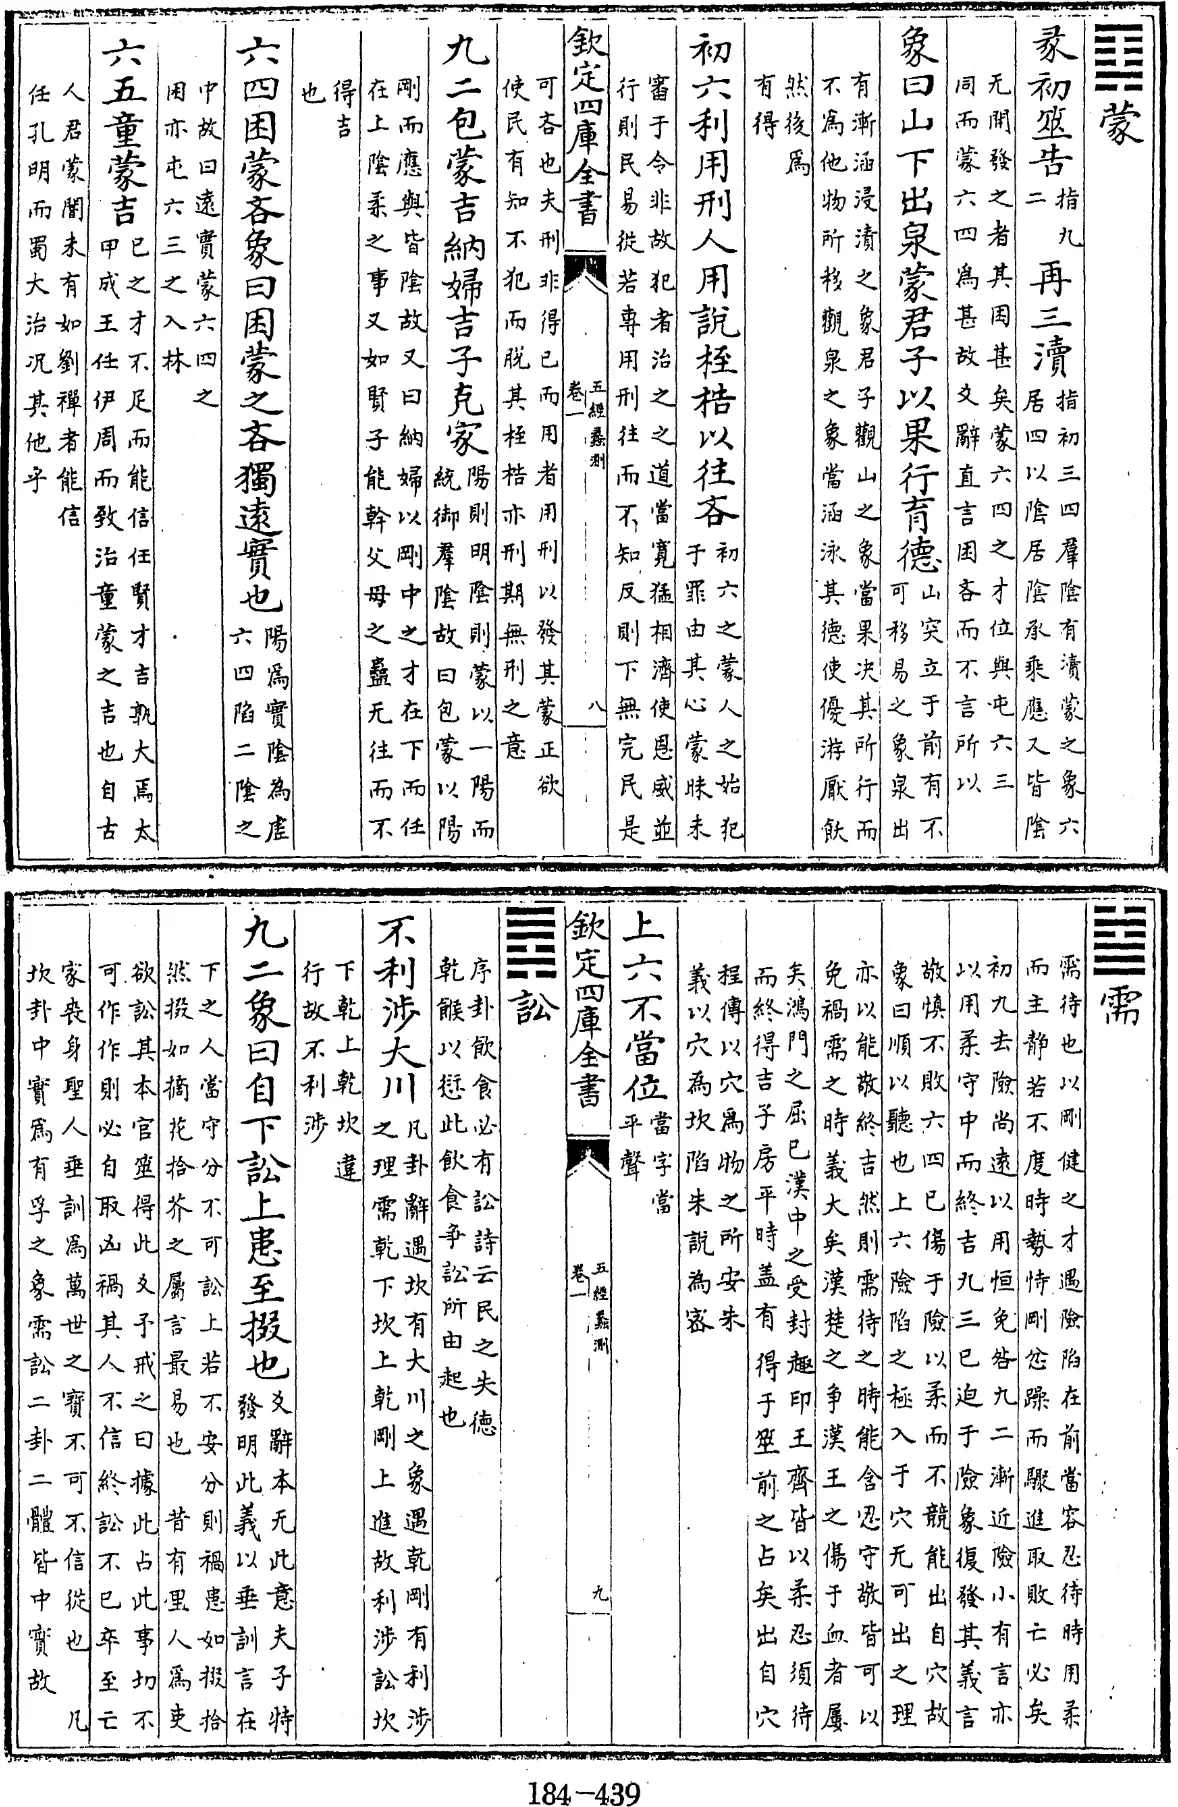 ䷃蒙
彖初筮告指九
二再三瀆指初三四羣陰有瀆蒙之象六
居四以陰居陰承乘應又皆陰
无開發之者其困甚矣蒙六四之才位與屯六三
同而蒙六四爲甚故爻辭直言困吝而不言所以
象曰山下出泉蒙君子以果行育德山突立于前有不
可移易之象泉出
有漸涵浸漬之象君子觀山之象當果決其所行而
不爲他物所移觀泉之象當涵泳其德使優游厭飫
然後爲
有得
初六利用刑人用說桎梏以往吝初六之蒙人之始犯
于罪由其心蒙昧未
審于令非故犯者治之之道當寛猛相濟使恩威並
行則民易從若專用刑往而不知反則下無完民是
欽定四庫全書
五經蠡測
卷一
八
可吝也夫刑非得已而用者用刑以發其蒙正欲
使民有知不犯而脱其桎梏亦刑期無刑之意
九二包蒙吉納婦吉子克家陽則明陰則蒙以一陽而
統御羣陰故曰包蒙以陽
剛而應與皆陰故又曰納婦以剛中之才在下而任
在上陰柔之事又如賢子能幹父母之蠱无往而不
得吉
也
六四困蒙吝象曰困蒙之吝獨遠實也陽爲實陰為虛
六四陷二陰之
中故曰遠實蒙六四之
困亦屯六三之入林
六五童蒙吉已之才不足而能信任賢才吉孰大焉太
甲成王任伊周而致治童蒙之吉也自古
人君蒙闇未有如劉禪者能信
任孔明而蜀大治况其他乎
䷄需
需待也以剛健之才遇險陷在前當容忍待時用柔
而主静若不度時勢恃剛忿躁而驟進取敗亡必矣
初九去險尚遠以用恒免咎九二漸近險小有言亦
以用柔守中而終吉九三已迫于險象復發其義言
敬慎不敗六四已傷于險以柔而不競能出自穴故
象曰順以聽也上六險陷之極入于穴无可出之理
亦以能敬終吉然則需待之時能含忍守敬皆可以
免禍需之時義大矣漢楚之争漢王之傷于血者屢
矣鴻門之屈巳漢中之受封趣印王齊皆以柔忍須待
而終得吉子房平時盖有得于筮前之占矣出自穴
程傳以穴爲物之所安朱
義以穴為坎陷朱說為宻
上六不當位當字當
平聲
欽定四庫全書
五經蠡測
卷一
九
䷅訟
序卦飲食必有訟詩云民之失德
乾餱以愆此飲食争訟所由起也
不利涉大川凡卦辭遇坎有大川之象遇乾剛有利涉
之理需乾下坎上乾剛上進故利涉訟坎
下乾上乾坎違
行故不利涉
九二象曰自下訟上患至掇也爻辭本无此意夫子特
發明此義以垂訓言在
下之人當守分不可訟上若不安分則禍患如掇拾
然掇如摘花拾芥之屬言最易也昔有里人爲吏
欲訟其本官筮得此爻予戒之曰據此占此事切不
可作作則必自取凶禍其人不信終訟不已卒至亡
家喪身聖人垂訓爲萬世之寶不可不信從也凡
坎卦中實爲有孚之象需訟二卦二體皆中實故
184-439